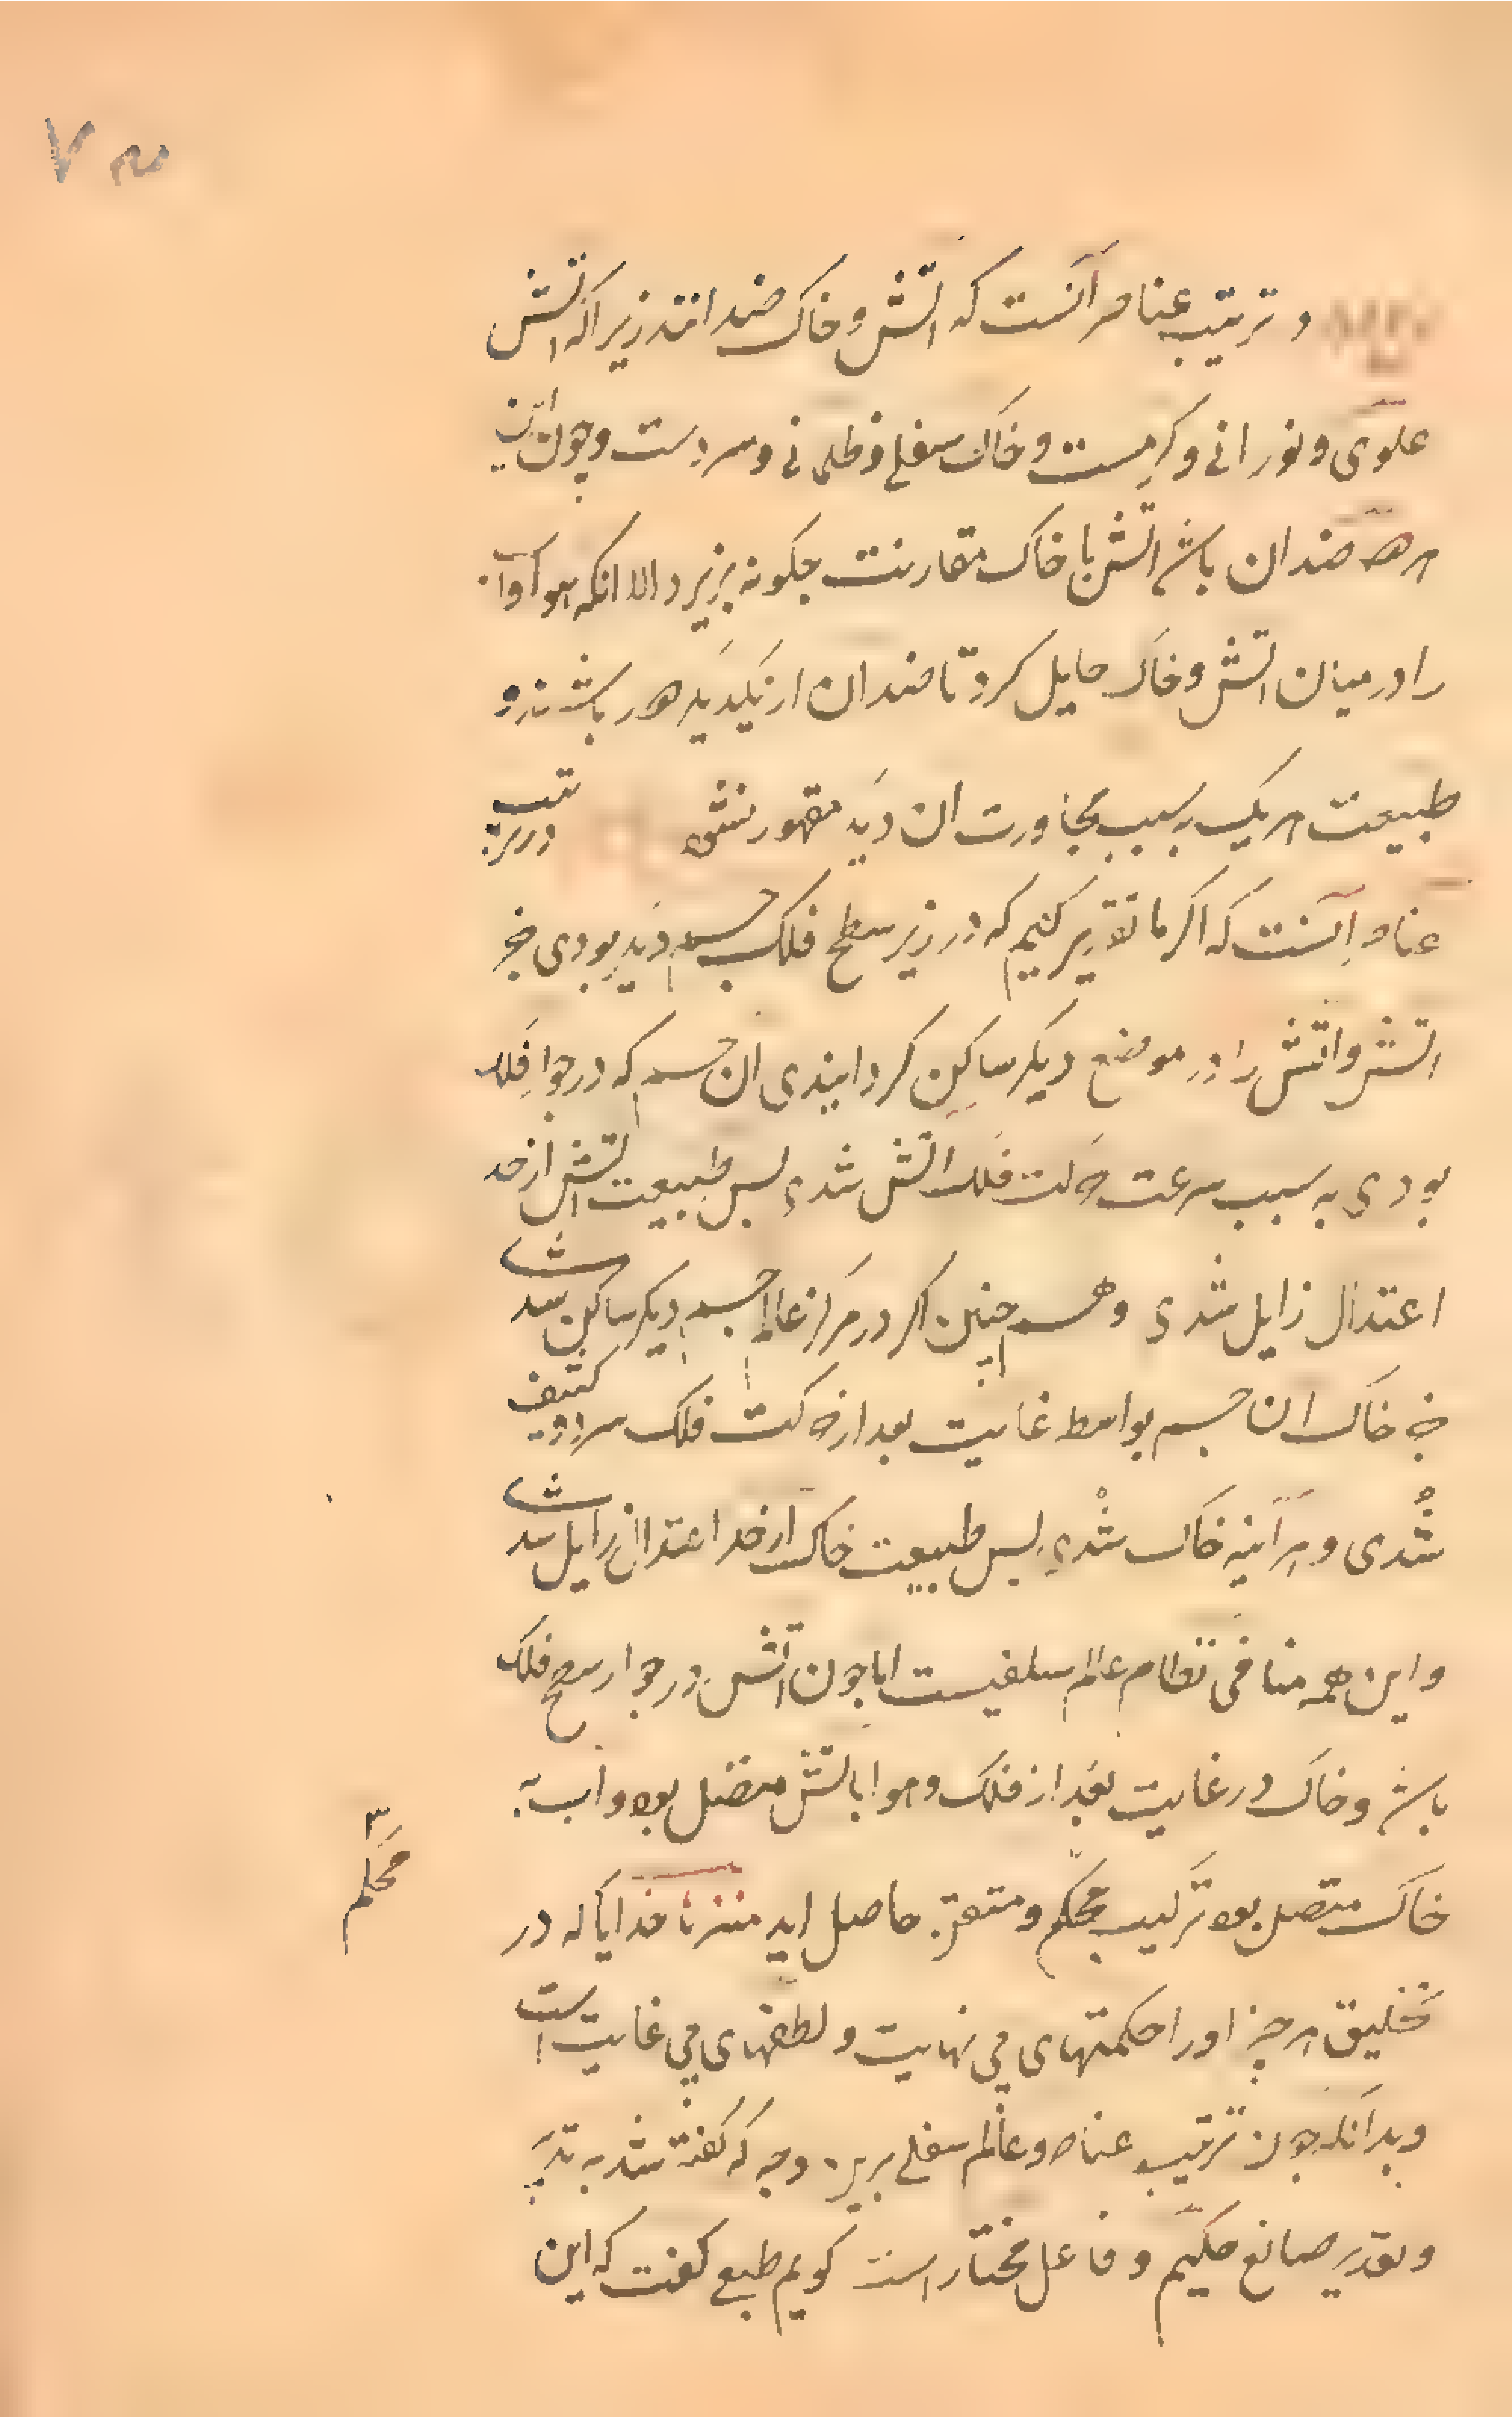 و ترتیب عناصر آنست که اتش و خاک ضدانند زیرا که اتش
علوی و نورانی و کرمست و خاک سفلی و ظلمانی و سردست و چون این
هر ضدان باشد اتش با خاک مقارنت چکونه پزیرد الا انکه هوا و آب
را در میان اتش و خاک حایل کرد تا ضدان از یکدیکر دور باشند و
طبیعت هر یک بسبب مجاورت ان دیگر مقهور نشود در ترتیب
عناصر آنست که اکر ما تقدیر کنیم که در زیر سطح فلک جسم دیکر بودی جز
اتش و اتش را در موضع دیکر ساکن کردانیدی ان جسم که در جوار فلک
بودی به سبب سرعت حرکت فلک اتش شدی بس طبیعت اتش از حد
اعتدال زایل شدی و هم چنین اکر در مرکز عالم جسم دیکر ساکن
جز خاک ان جسم بواسطه غایت بعد از حرکت فلک سرد و کثیف
شدی و هر آینه خاک شدی بس طبیعت خاک از حد اعتدال زایل
و این همه منافی نظام عالم سلفیست اما چون اتش در جوار سطح فلک
باشد و خاک در غایت بعد از فلک و هوا باتش متصل بود و آب به
خاک متصل بود ترکیب محکم و متقن حاصل اید منزها خدایا که در
محکم
تخلیق هر چیز او را حکمتهای بی نهایت و لطفهای بی غایت است
و بدانکه چون ترتیب عناصر و عالم سفلی برین وجه که کفته شد به تدبیر
و تقدیر صانع حکیم و فاعل مختار است کویم طبع کفت که این